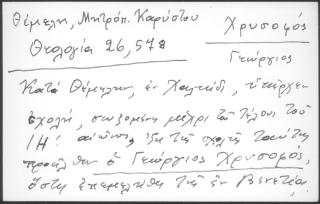 Θέμελη, Μητρόπ. Καρύστου
Θεολογία 26, 578
Χρυσοφός
Γεώργιος
Κατά Θέμελην, ἐν Χαλκίδι, ὑπῆρχεν
σχολή, σωζομένη μέχρι τοῦ τέλους τοῦ
ΙΗ' αἰῶνος, ἐξ τῆς σχολῆς ταύτης
προῆλθεν ὁ Γεώργιος Χρυσοφός,
ὅστις ἐπεμελήθη τῆς ἐν Βενετίᾳ